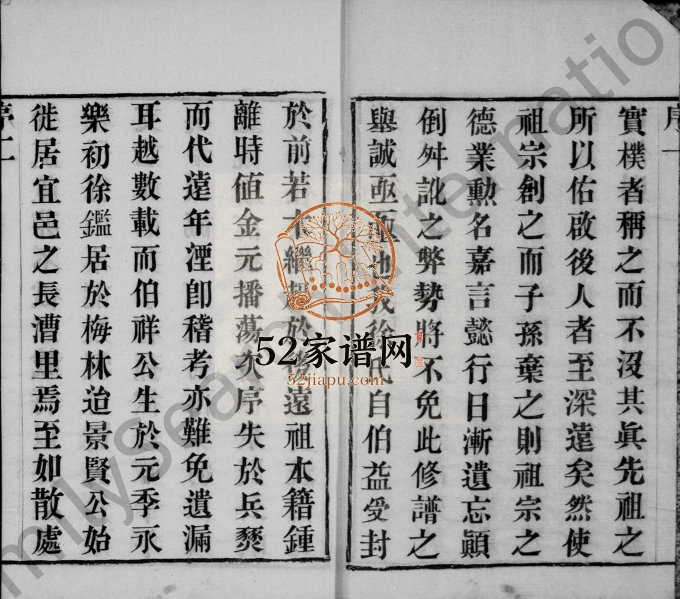 序一
實樸者稱之而不沒其眞先祖之
所以佑啟後人者至深遠矣然使
祖宗創之而子孫棄之則祖宗之
德業勳名嘉言懿行日漸遺忘顚
倒舛訛之弊勢將不免此修譜之
舉誠亟亟也我徐氏自伯益受封
於前若木繼起於後遠祖本籍鍾
離時値金元播蕩次序失於兵燹
而代遠年湮卽稽考亦難免遺漏
耳越數載而伯祥公生於元季永
樂初徐鑑居於梅林迨景賢公始
徙居宜邑之長漕里焉至如散處
序二
52家谱网
52jiapu.com